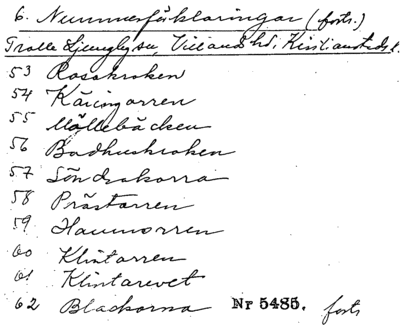 6. Nummerförklaringar (forts.)
Trolle Ljungby sn, Villands hd, Kristianstads l.
53 Rosakroken
54 Käringarren
55 Möllebäcken
56 Badhuskroken
57 Söndrakorra
58 Prästarren
59 Hammorren
60 Klintarren
61 Klintarevet
62 Blackorna Nr 5485. forts